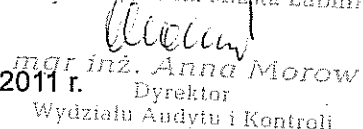 mgr inż. Anna Morow
2011 r.
Dyrektor
Wydziału Audytu i Kontroli